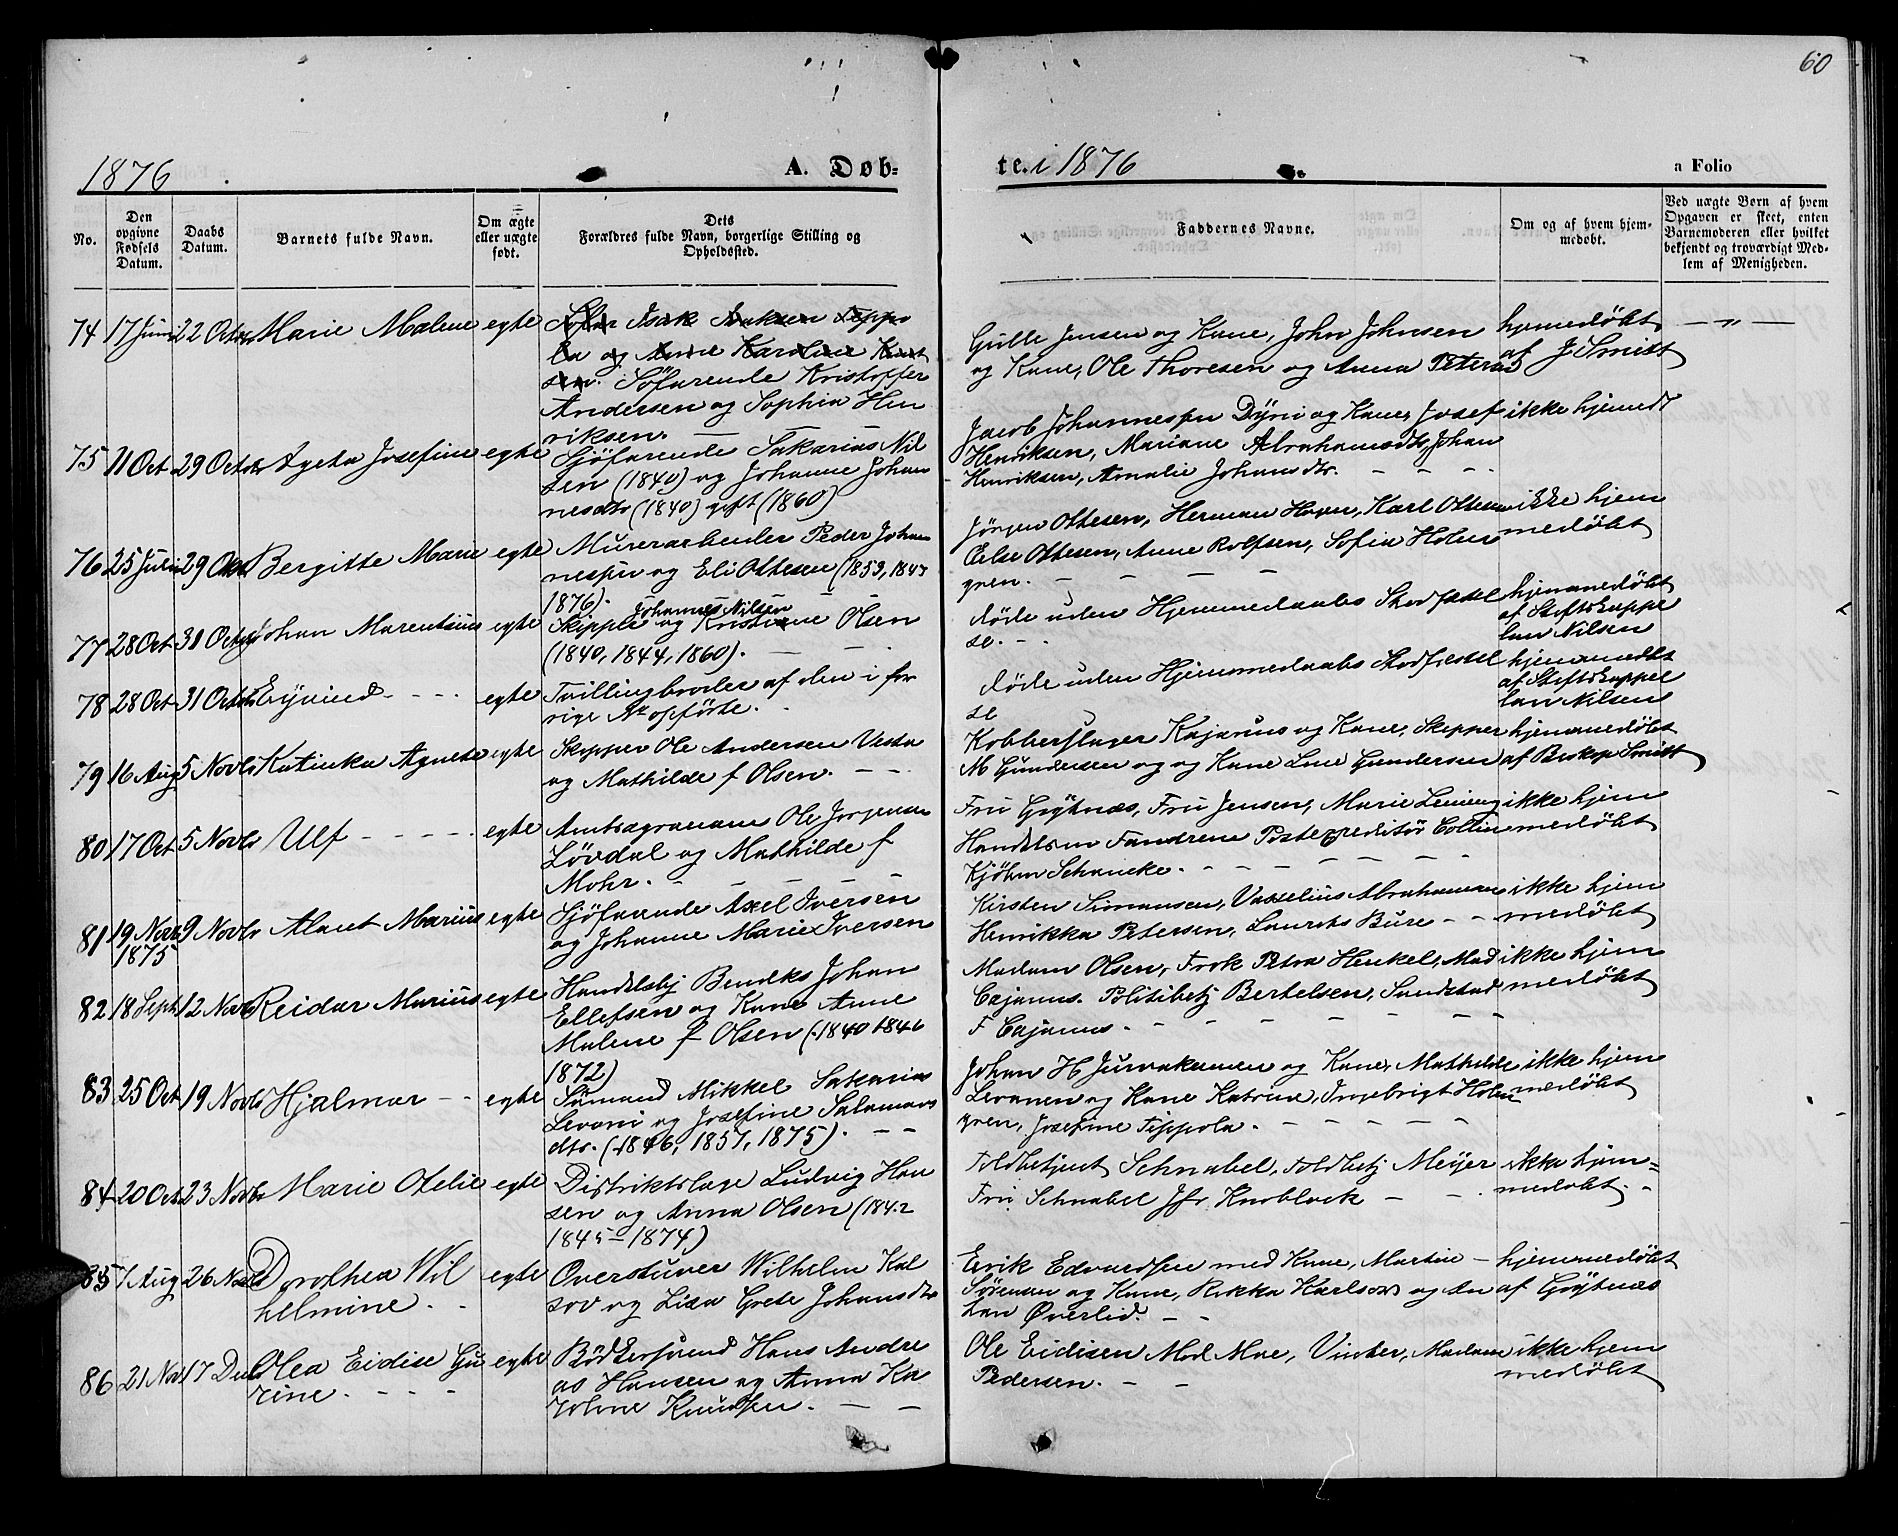 60
1876
A. Døb-
te. i 1876
a Folio
No.
Den opgivne Fødsels Datum.
Daabs Datum.
Barnets fulde Navn.
Om ægte eller uægte født.
Dets Forældres fulde Navn, borgerlige Stilling og Opholdssted.
Faddernes Navne.
Om og af hvem hjemmedøbt.
Ved uægte Børn af hvem Opgaven er skeet, enten Barnemoderen eller hvilket bekjendt og troværdigt Medlem af Menigheden.
74 17 Juni 22 Octbr Marie Malene egte
Isak Isaksen Tippo
la og Anne Karoline Knut
sen. Söfarende Kristoffer
Andersen og Sophia Hen
riksen.
Gulle Jensen og Kone, John Johnsen
og Kone, Ole Thoresen og Anna Peters
hjemedøbt
af J Smitt
— " —
75 11 Oct 29 Octbr Ageta Josefine egte
Sjöfarende Sakarias Nil
sen (1840) og Johanne Johan
nesdtr (1840) gift (1860)
Jacob Johannespn Dyni og Kone, Josef
Henriksen, Mariane Abrahamsdtr, Johan
Henriksen, Amalie Johansdtr.
ikke hjemedt
76 25 Juli 29 Okt Bergitte Marie egte
Murerarbeider Peder Johan
nespn og Eli Ottesen (1853, 1843
1876).
Jörgen Ottesen, Herman Hagen, Karl Ottesen
Else Ottesen, Anne Rolfsen, Sofia Holm
gren.
ikke hjem
medøbt
77 28 Oct 31 Octbr Johan Marentius egte
Johannes Nilsen
Skipper og Kristine Olsen
(1840, 1844, 1860).
døde uden Hjemmedaabs Stadfæstel
se.
hjemmedøbt
af Stiftskappe
lan Nilsen
78 28 Oct 31 Octbr Eyvind egte
Tvillingbroder af den i for
rige No opförte.
døde uden Hjemmedaabs Stadfæstel
se
hjemmedbt
af Stiftskappel
lan Nilsen
79 16 Aug 5 Novbr Katinka Agnete egte
Skipper Ole Andersen Vesta
og Mathilde f Olsen.
Kobberslager Kajanus og Kone, Skipper
M Gundersen og og Kone Line Gundersen
hjemmedøbt
af Biskop Smitt
80 17 Oct 5 Novbr Ulf egte
Ole Jörgensen
Lövdal og Mathilde f
Mohr.
Fru Grÿtnæs, Fru Jensen, Marie Lening
Handelsm Fandrem Postexpeditör Collin
Kjöbm Schancke.
ikke hjem
medøbt
81 19 Novbr 1875 9 Novbr Alaret Marius egte
Sjöfarende Axel Iversen
og Johanne Marie Iversen
Kirsten Simonsen, Vasselius Abrahamsen
Henrikka Petersen, Laurits Bure
ikke hjem
medøbt
82 18 Sept 12 Novb Reidar Marius egte
Handelsbj Bendks Johan
Ellefsen og Kone Anne
Malene f Olsen (1840 1846
1872)
Madam Olsen, Frok Petra Henkel, Mad
Cajanus. Politibetj Bertelsen, Sundstad
F Cajanus.
ikke hjem
medøbt
83 25 Oct 19 Novbr Hjalmar egte
Sömand Mikkel Sakarias
Levoni og Josefine Salamons
dtr. (1846, 1857, 1875).
Johan H Jurvakainen og Kone, Mathilde
Levonen og Kone Katrine, Ingebrigt Holm
gren, Josefine Tippola.
ikke hjem
medøbt
84 20 Oct 23 Novbr Marie Ofelie egte
Distriktslæge Ludvig Han
sen og Anna Olsen (1842
1845 – 1874)
Toldbetjent Schnabel, Toldbetj Meÿer
Fru Schnabel Jfr Knoblock
ikke hjem=
medøbt.
85 7 Aug 26 Novbr Dorothea Wil
helmine.
egte
Overstuver Wilhelm Kal
sov og Lisa Grete Johansdtr
Erik Edvardsen med Kone, Martin
Sörensen og Kone, Rikka Karlsow og An
ton Øverlid.
hjemmedøbt
af Grytnæs
86 21 Nov 17 Decbr Olea Eidise Gu
rine.
egte
Bödkersvend Hans Andre
as Hansen og Anna Ka
roline Knudsen.
Ole Eidisen Mad Moe, Vinter, Madam
Pedersen.
ikke hjem
medøbt